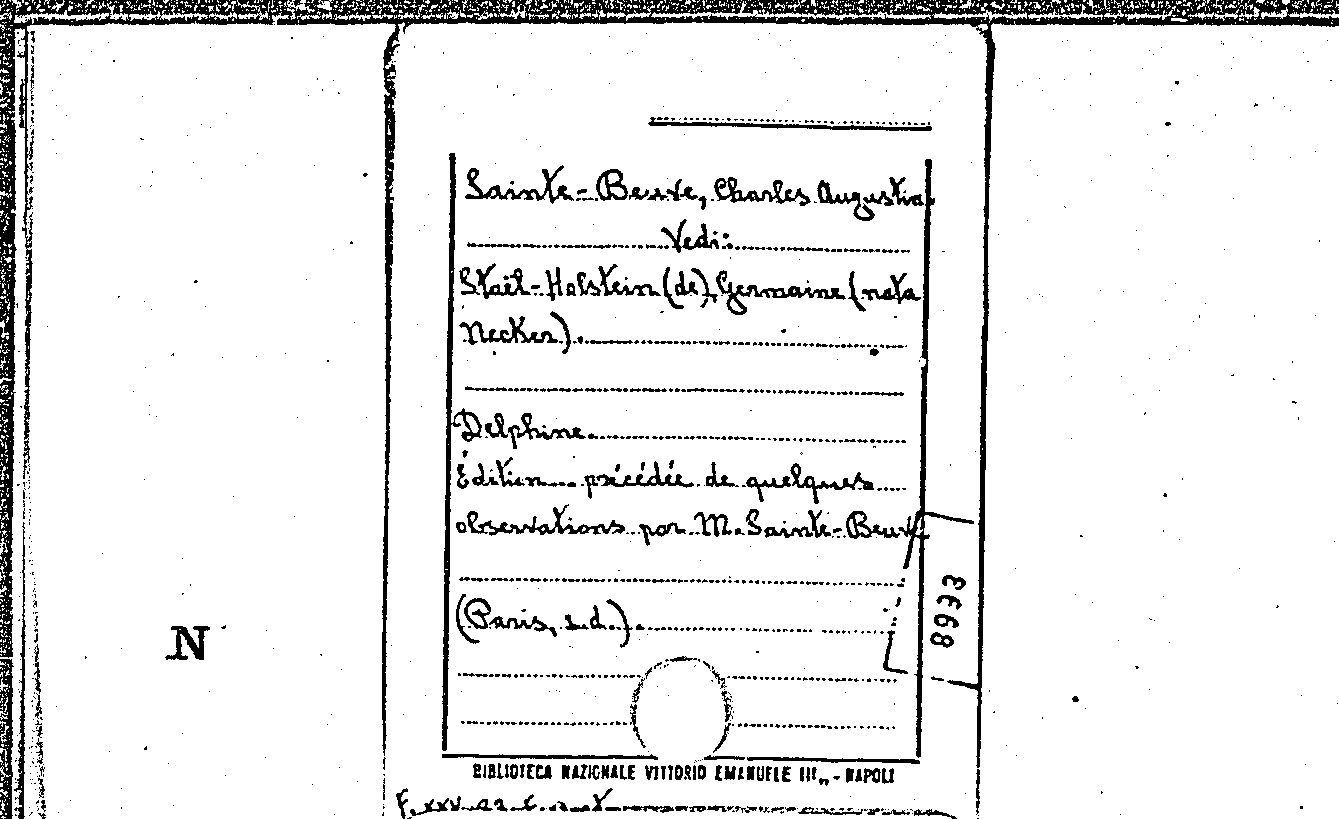 Sainte-Beuve, Charles Augustin.
Vedi:
Staël-Holstein (de), Germaine (nata
Necker).
Delphine.
Édition précédée de quelques
observations par M. Sainte-Beuve
(Paris, s.d.).
8993
N
BIBLIOTECA NAZIONALE VITTORIO EMANUELE III„ - NAPOLI